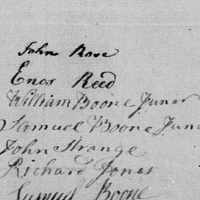 John Rose
Enos Reed
William Boone Juner
Samuel Boone June
John Strange
Richard Jones
Samuel Boone